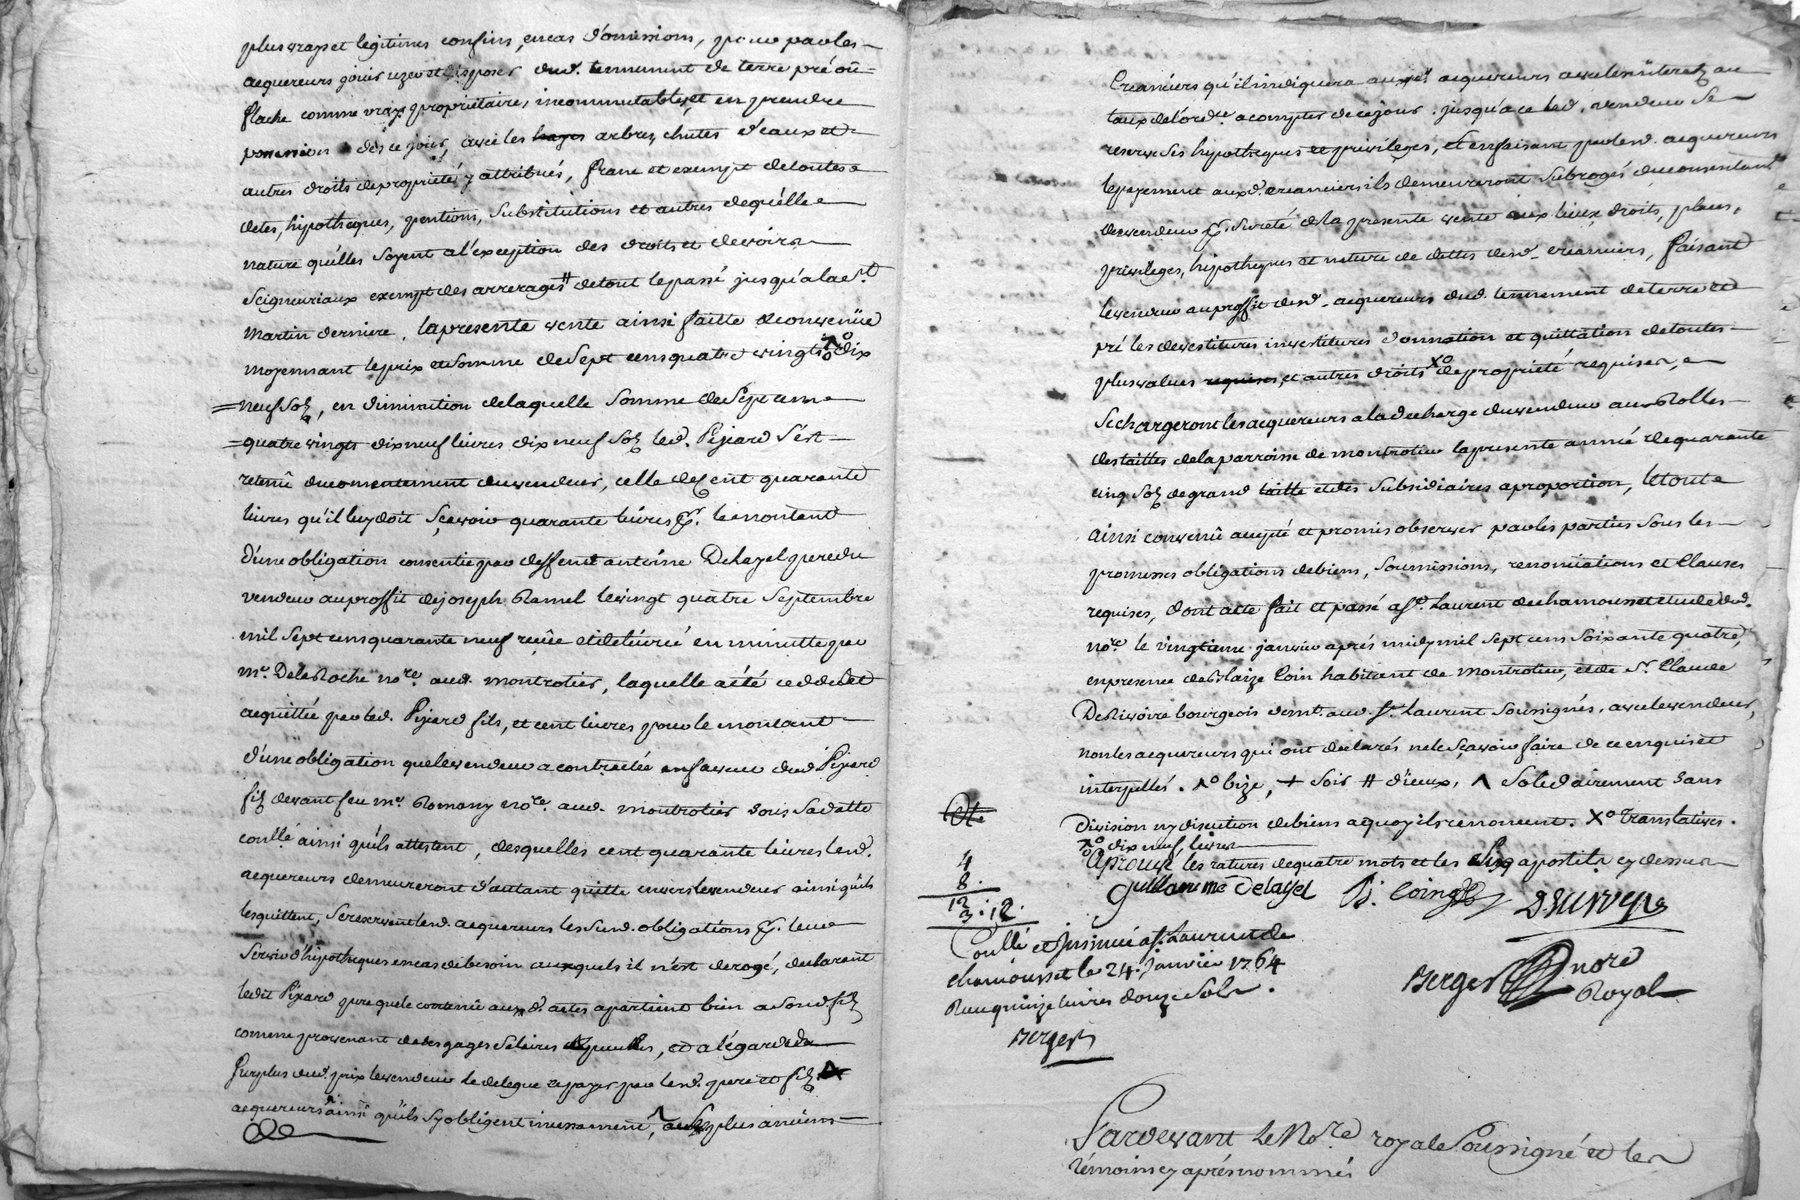 plus vrays et légitimes confins, en cas d'omissions, pour par les
acquereurs jouir uzer et disposer dud. tennement de terre pré et
flache comme vrays propriétaires, incommutables, et en prendre
possession dès ce jour, avec les hayes arbres, chutes d'eaux et
autres droits de propriété y attribués, franc et exempt de toutes
detes, hypotheques, pentions, substitutions et autres de quélle
nature quélles soyent a l'exception des droits et devoirs
seigneuriaux exempt des arrerages # de tout le passé jusqu'a la st.
martin derniere, la presente vente ainsi faitte et convenüe
moyennant le prix et somme de sept cens quatre vingts dix
neuf sols, en diminution de laquelle somme de sept cens
quatre vingts dix neuf livres dix neuf sols led. Pijard s'est
retenû du consentement du vendeur, celle de cent quarante
livres qu'il luy doit sçavoir quarante livres pr. le montant
d'une obligation consentie par deffunt antoine Delayel pere du
vendeur au proffit de joseph Ramel le vingt quatre septembre
mil sept cens quarante neuf reçüe et delivrée en minutte par
me. Delaroche nore. aud. montrotier, laquelle a été cedde et
acquittée par led. Pijard fils, et cent livres pour le montant
d'une obligation que le vendeur a contractée en faveur dud. Pijard
fils devant feu me. Romany nore. aud. montrotier sous sa datte
conllé ainsi quils attestent, desquelles cent quarante livres lesd.
acquereurs demeureront d'autant quitte envers le vendeur ainsi quils
les quittent, se reservent lesd. acquereurs les susd. obligations pr. leur
servir d'hypotheques en cas de besoin auxquels il n'est derogé, declarant
ledit Pijard pere que le contenu auxd. actes apartient bien a sond. fils
comme provenant de ses gages salaires, et a légard du
surplus dud. prix le vendeur le delegue a payer par lesd. pere et fils
acquereurs ainsi quils s'y obligent a ses plus anciens
Creanciers qu'il indiquera auxd. acquereurs avec les interets au
taux de l'ord.ce a compter de ce jour. jusqu'a ce led. vendeur se
reserve ses hypotheques et privilèges, et en faisant par lesd. acquereurs
le payement auxd. creanciers ils demeureront subrogés du consentement
du vendeur pr. sureté de la presente vente aux lieux, droits, places,
privileges, hypotheques et nature de dettes desd. creanciers, faisant
le vendeur au proffit desd. acquereurs dud. tennement de terre et
pré les devestitures investitures donnation et quittation de toutes
plus values requises et autres droits Xo de propriété requises,
se chargeront les acquereurs a la decharge du vendeur aux Rolles
des tailles de la parroisse de montrotier la presente année de quarante
cinq sols de grand taille et des subsidiaires a proportion, le tout
ainsi convenû accepté et promis observer par les parties sous les
promesses obligations de biens, soumissions, renonciations et Clauses
requises, dont acte fait et passé a st. Laurent de chamousset etude dud.
nore. le vingtieme janvier aprés midy mil sept cens soixante quatre,
en presence de Blaize Coin habitant de montrotier, et de Sr. Claude
Derivoire bourgeois demt. aud. st. Laurent soussignés, avec le vendeur,
non les acquereurs qui ont declarés ne le sçavoir faire de ce enquis et
interpellés. Λo bize, + soir # d'ieux, Λ soledairement sans
division ny discution de biens a quoy ils renoncent. Xo translatives.
Xo dix neuf livres
Aprouvé les ratures de quatre mots et les six apostiles cy dessus
Guillaume Delayel B. Coing Derivoyre
4
8.
12
3:12.
Conllé et Insinué a st. Laurent de
chamousset le 24. Janvier 1764
Reçu quinze livres douze sols.
Berger
Berger nore
Royal
Pardevant Le Nore royal Soussigné et les
témoins cy aprés nommés